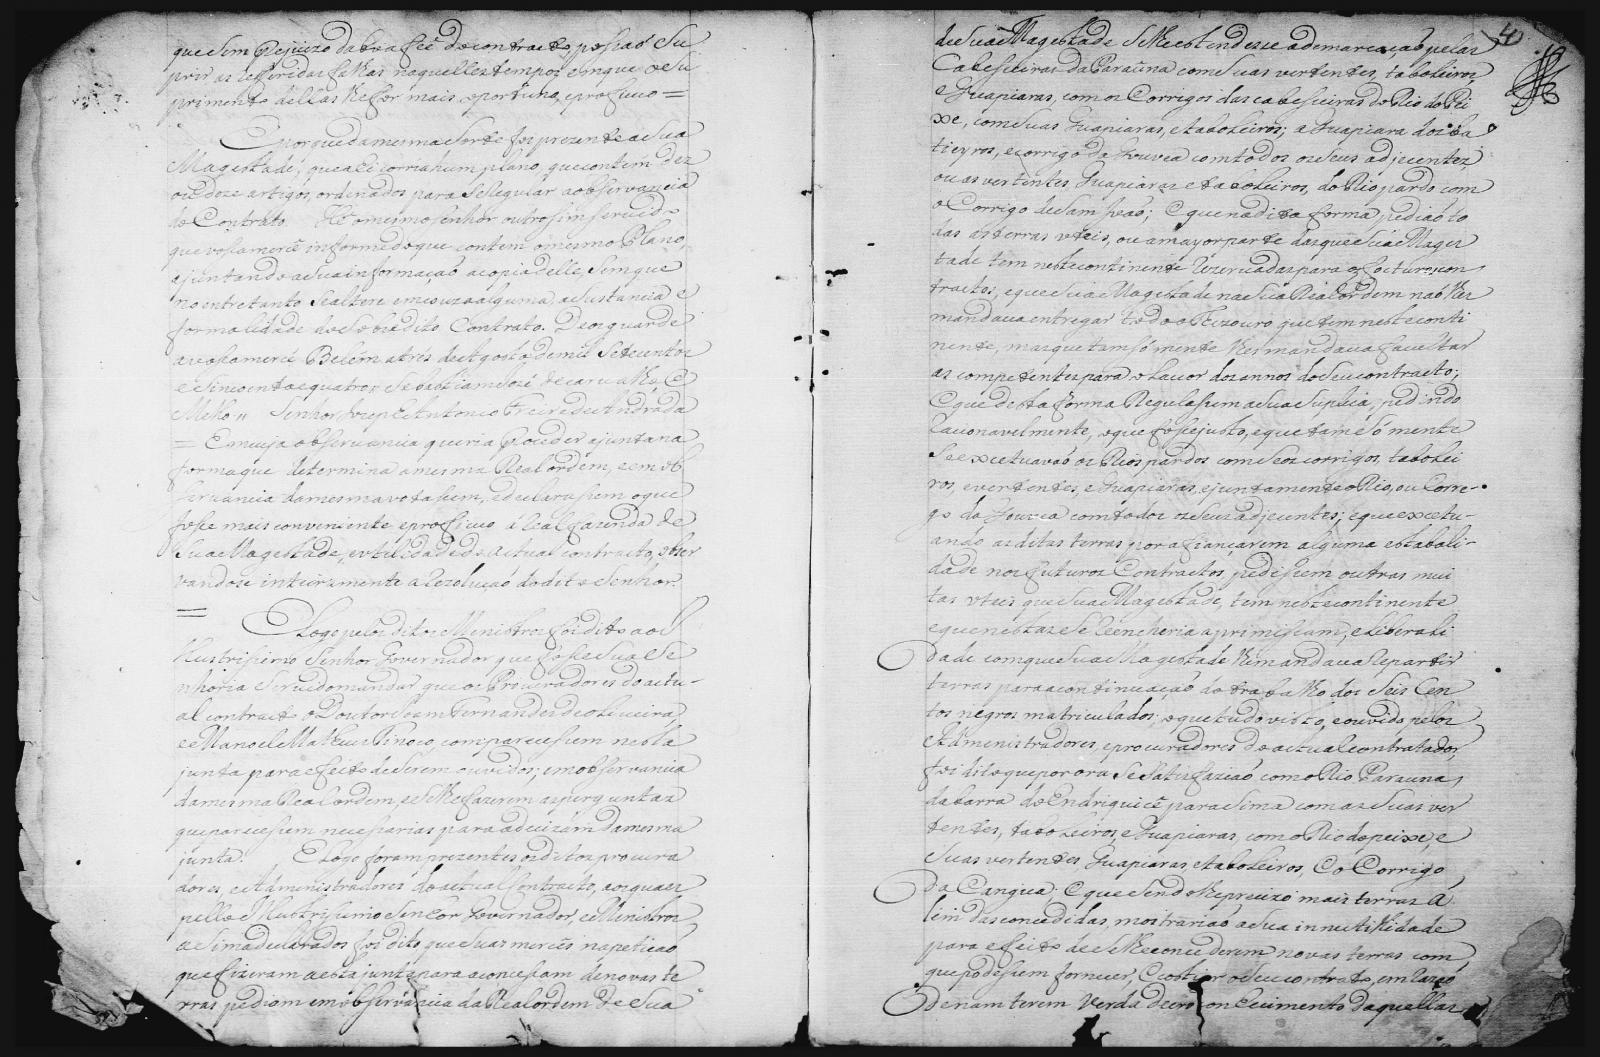 que sem prejuizo da boa feé do contracto, possaõ Su
prir as refferidas faltas naquelles tempos em que o Su
primento dellas lhe for mais oportuno, e profiuo =
E porque da mesma Sorte foi prezente a Sua
Magestade, que ali corria hum plano, que contem dez
ou doze artigos, ordenados para Se Regular a observancia
do Contrato. Hé o mesmo Senhor outro sim servido
que vossa mercê informe do que contem o mesmo Plano,
ajuntando a Sua informaçaõ a copia delle, Sem que
no entretanto Se altere em couza alguma, a Sustancia e
formalidade do Sobredito Contrato. Deos guarde
a vossa mercê Belem a tres de Agosto de mil Setecentos
e Sincoenta e quatro = Sebastiam Jozé de Carvalho, E
Mello = Senhor Joze Antonio Freire de Andrada
= Em cuja observancia queria proceder a junta na
forma que determina a mesma Real ordem, e em ob
servancia da mesma votasem, e declarasem o que
fose mais conveniente e profiuo á Real fazenda de
Sua Magestade, e utilidade do actual contracto, obser
vandose inteiramente a Rezoluçaõ do dito Senhor.
=
E Logo pelos ditos Ministros foi dito ao Il
lustrisimo Senhor Governador que fose Sua Se
nhoria Servido mandar que os Procuradores do actu-
al contracto o Doutor Joam Fernandes de oliveira
e Manoel Matheus Tinoco, comparecesem nesta
junta para efeito de Serem ouvidos; em observancia
da mesma Real ordem, e Se lhe fazerem as perguntas
que parecesem necesarias para a decizám da mesma
junta. E Logo foram prezentes os ditos procura
dores e Administradores do actual Contracto, aos quaes
pello Illustrisimo Senhor Governador, e Ministros
asima declarados foi dito que Suas mercês na petiçaõ
que fizeram a esta junta para a concesam de novas te
rras pediam em observancia da Real ordem de Sua
4
de Sua Magestade Se lhe estendesse a demarcaçaõ pelas
Cabeseiras da Paraúna com Suas vertentes, taboleiros
e Guapiaras, com os Corrigos das cabeseiras do Rio do Pei
xe, com Suas Guapiaras, e taboleiros; a Guapiara dos
e corrigo da Gouvea com todos os Seus adjecentes,
ou as vertentes, Guapiaras e taboleiros, do Rio pardo com
o Corrigo de Sam Joaõ; E que na dita forma, pediaõ to
das as terras uteis, ou a mayor parte das que Sua Mages
tade tem neste continente rezervadas para os focturos con
tractos, e que Sua Magestade na Sua Real ordem naõ lhes
mandava entregar todo o Tezouro que tem neste conti
nente, mas que tam Sómente lhes mandava facultar
as competentes para o Lavor dos annos do Seu contracto;
E que desta forma Regulasem a Sua Suplica, pedindo
Racionavelmente, o que fose justo, e que tam Sómente
Se excetuavaõ os Rios pardos com Seos corrigos, tabolei
ros, e vertentes, e Guapiaras, e juntamente o Rio, ou Corre-
go da Gouvea com todos os Seus adjecentes; e que excetu-
ando as ditas terras por afiançarem alguma estabali-
dade nos futuros Contractos, pedisem outras mui
tas uteis que Sua Magestade, tem neste continente
e que nestas Se Reencheria a primisam, e liberali
dade com que Sua Magestade lhe mandava Repartir
terras para a continuaçaõ do trabalho dos Seis Cen
tos negros matriculados; o que tudo visto, e ouvido pelos
Administradores, e procuradores do actual contratador,
foi dito que por ora Se Satisfaziaõ com o Rio Parauna,
da barra do para Sima com as Suas ver
tentes, taboleiros, e Guapiaras, com o Rio do peixe, e
Suas vertentes Guapiaras, e taboleiros, E o Corrigo
da Cangica; E que Sendo lhe precizo mais terras a
lem das concedidas, mostrariaõ a Sua innutilidade
para efeito de Se lhe concederem novas terras com
que podesem fornecer, E costiar o Seu contrato, em Razaõ
de nam terem verdadeiro conhecimento daquellas